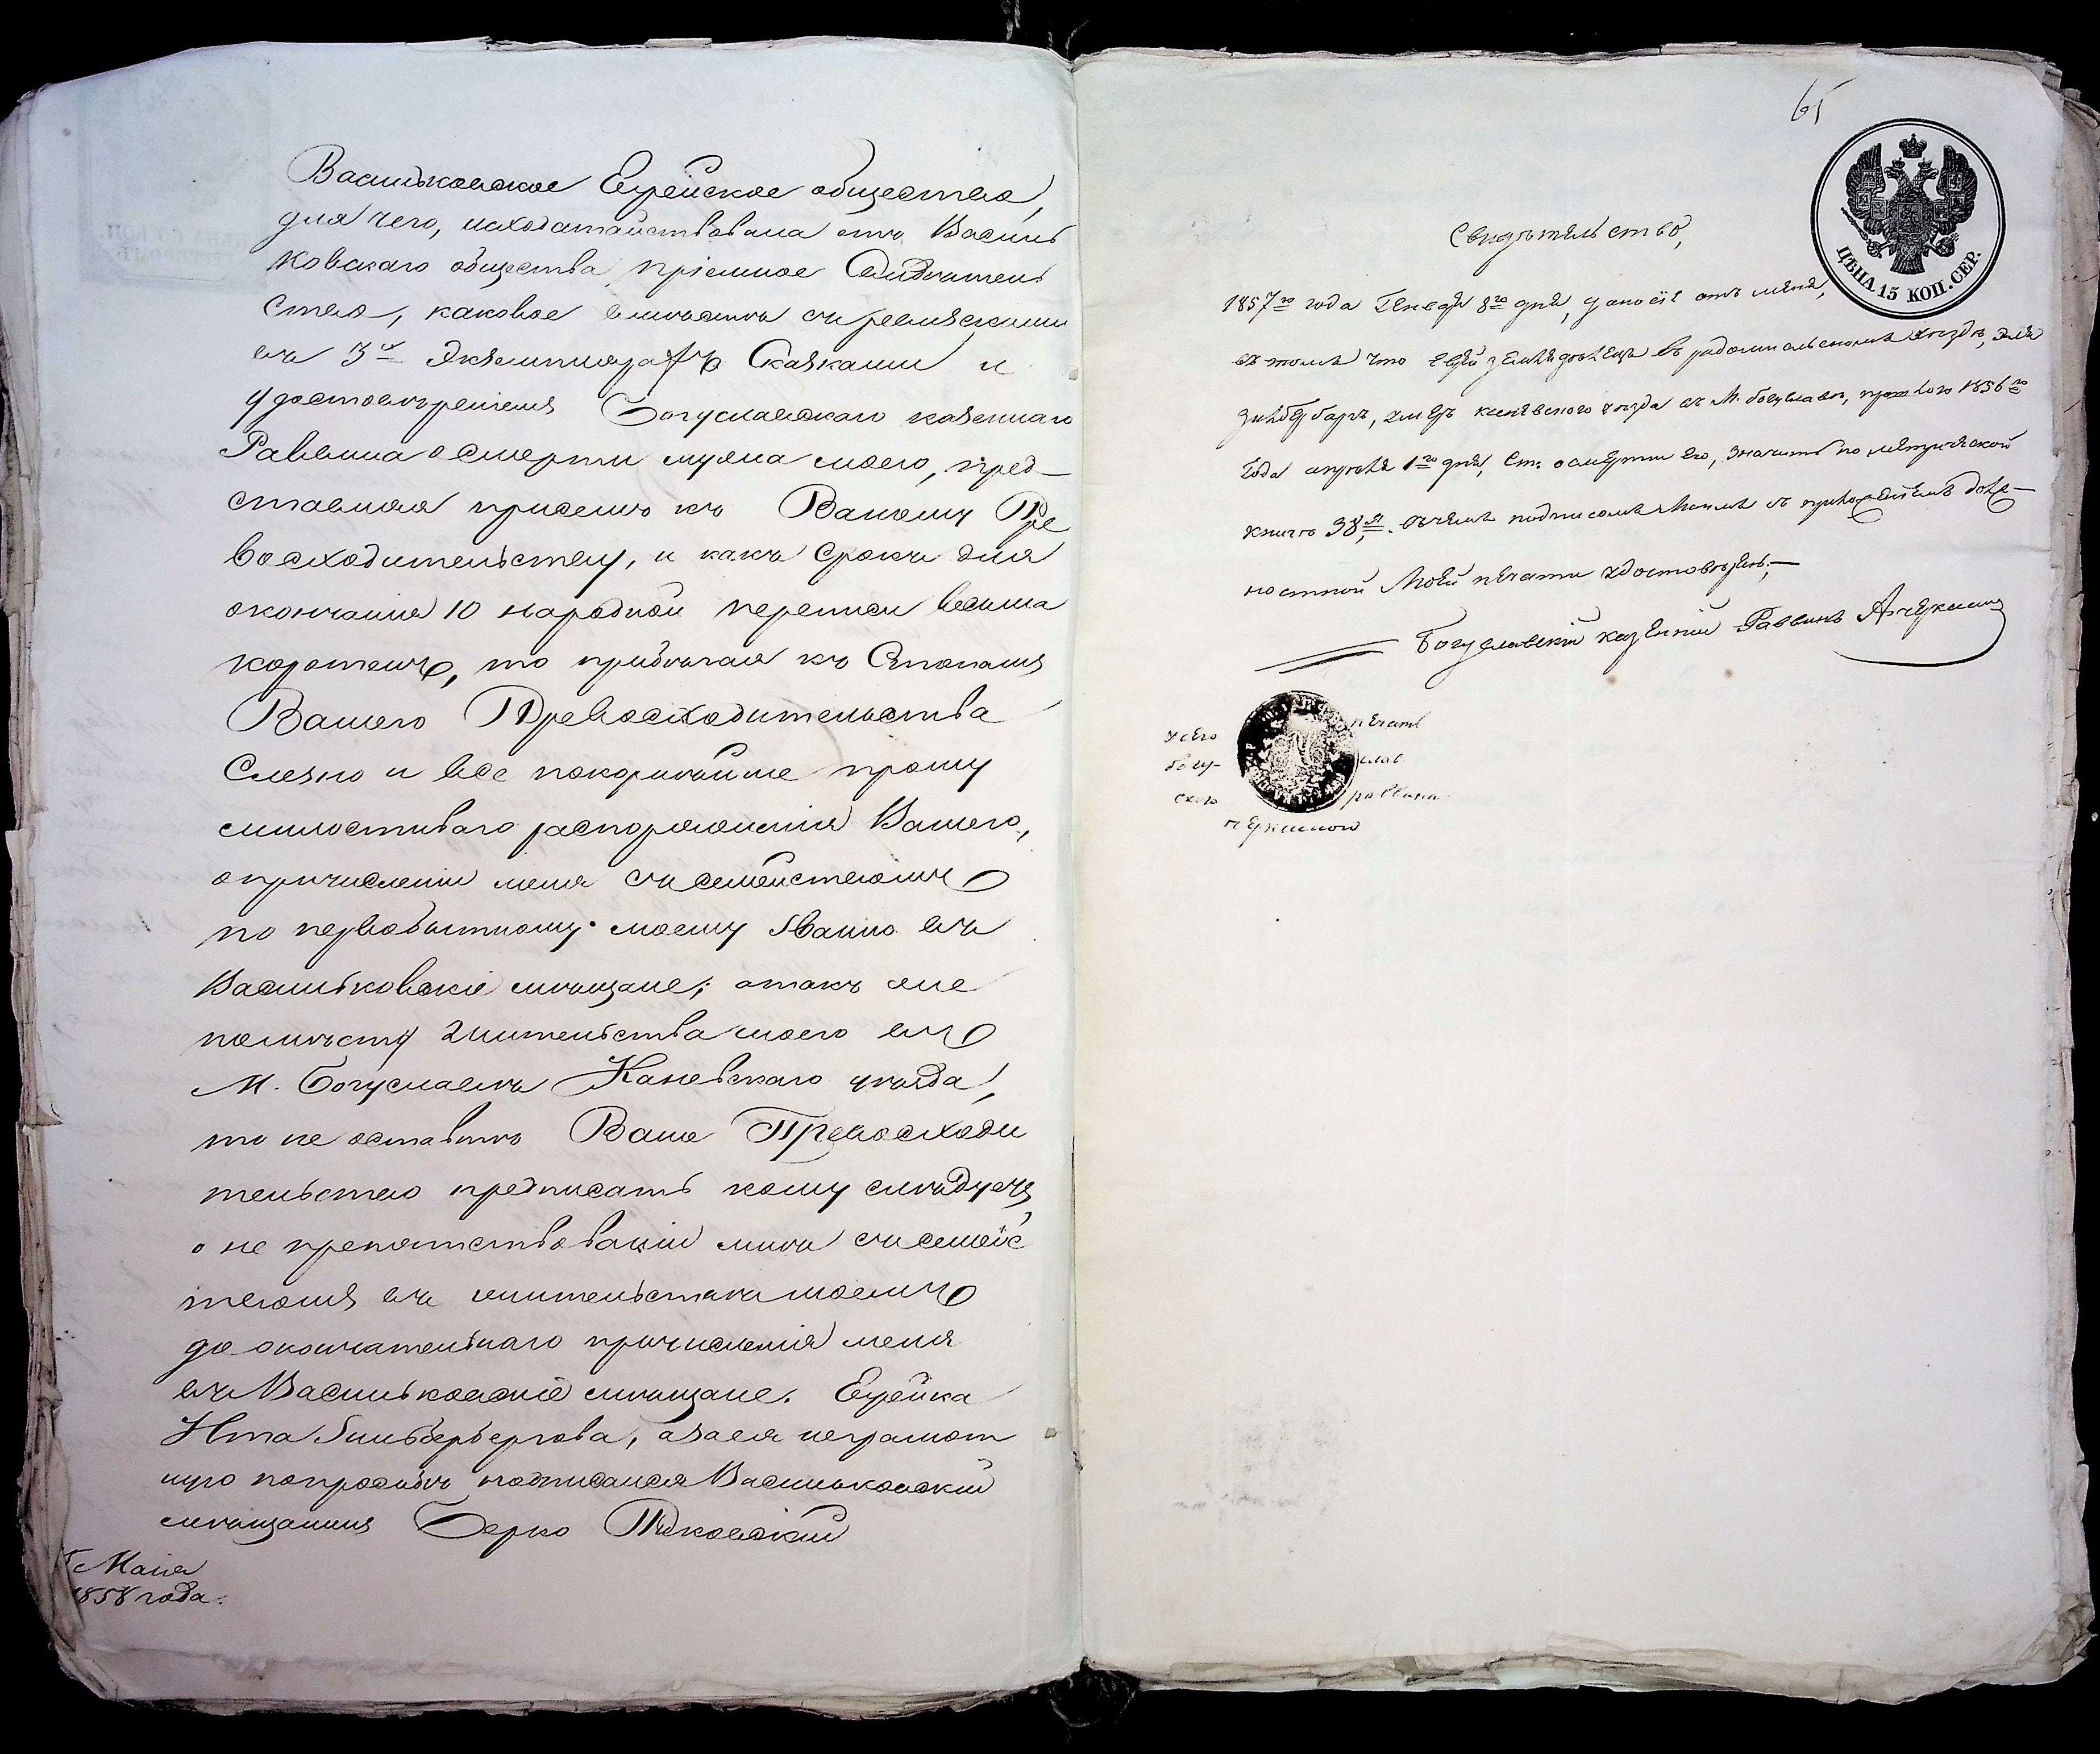 Васильковское Еврейское общество,
для чего, исходатайствовала отъ Василь
ковскаго общества пріемное Свидѣтель
ство, каковое вмѣстѣ съ ревизскими
въ 3хъ экземплярахъ Сказками и
удостовѣреніемъ Богуславскаго казеннаго
Раввина о смерти мужа моего, пред-
ставляя при семъ къ Вашему Пре
восходительству, и какъ срокъ для
окончанія 10 народной переписи весьма
коротокъ, то прибѣгая къ Стопамъ
Вашего Превосходительства
Слезно и все покорнѣйше прошу
милостиваго распоряженія Вашего,
о причисленіи меня съ семействомъ
по первобытному моему званію въ
Васильковскіе мѣщане; а такъ же
по мѣсту жительства моего въ
М. Богуславѣ Каневскаго уѣзда,
то не оставить Ваше Превосходи
тельство предписать кому слѣдуетъ,
о не препятствованіи мнѣ съ семейс
твомъ въ жительствѣ моемъ
до окончательнаго причисленія меня
въ Васильковскіе мѣщане. Еврейка
Ита Зильбербергова, а за ея неграмот
ную по просьбѣ подписался Васильковскій
мѣщанинъ Берко
Маія
1858 года.
65
ЦѢНА 15 КОП. СЕР.
Свидѣтельство,
1857го года Генвар 8го дня, дано сіе отъ меня,
въ томъ что еврей земледѣлецъ въ радомысльскомъ уѣздѣ,
зильбербаргъ, умеръ каневского уѣзда въ М. богуславѣ, прошлого 1856го
года апрѣля 1го дня, Ст. о смерти его, значитъ по метрической
книгѣ 38, въ чемъ подписомъ Моимъ съ приложеніемъ долж-
ностной Моей печати удостовѣряю;—
Богуславскій казенній Раввинъ А Черкаский
у сего печать
богу- слав
ского раввина
черкаского